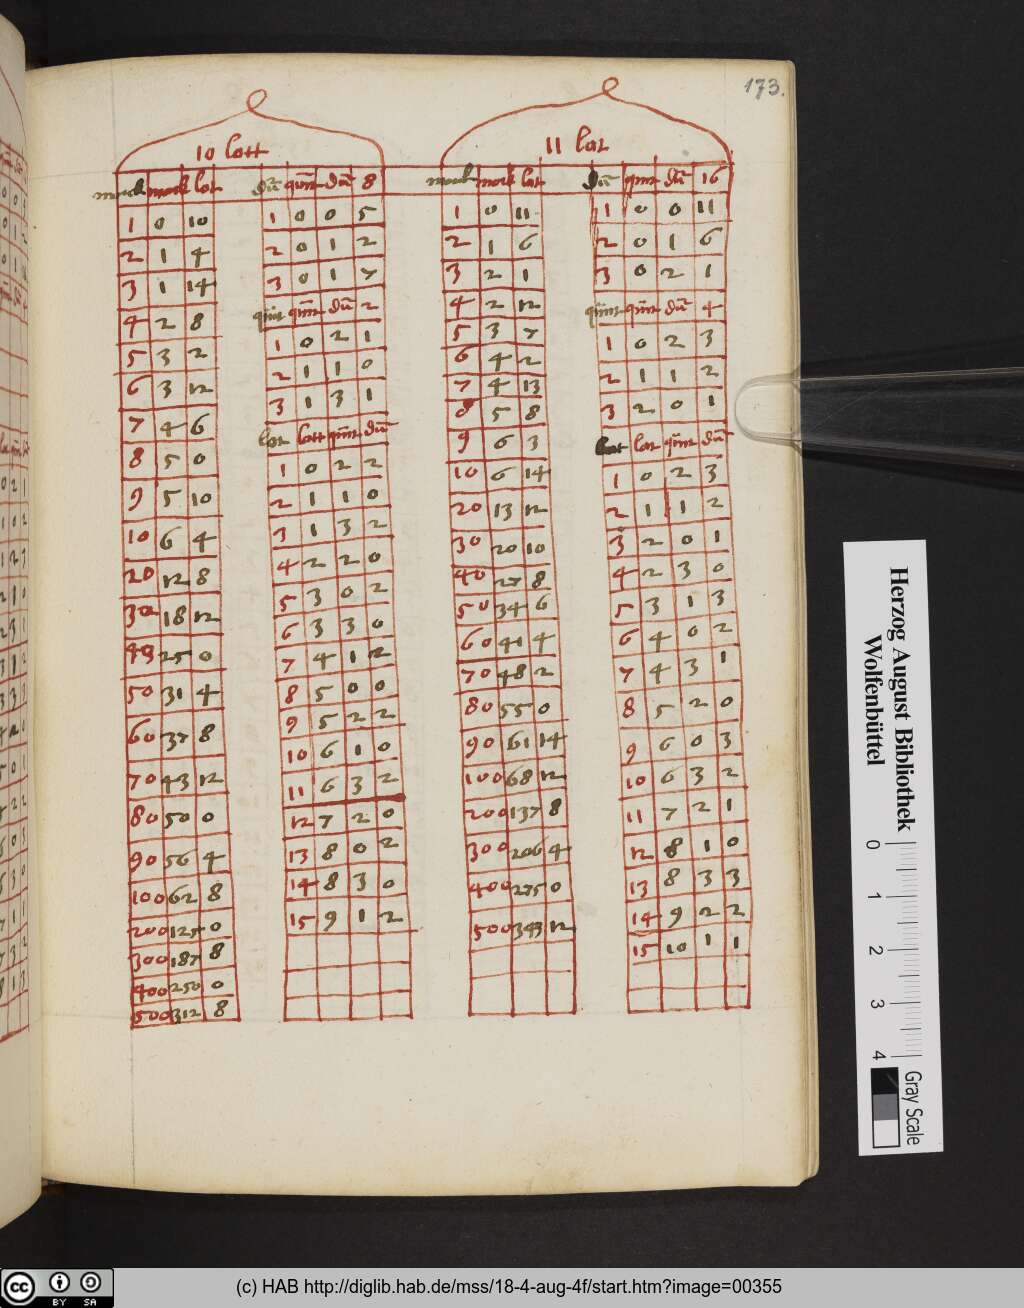 173.
10 lott
marck mark lot
1 0 10
2 1 4
3 1 14
4 2 8
5 3 2
6 3 12
7 4 6
8 5 0
9 5 10
10 6 4
20 12 8
30 18 12
40 25 0
50 31 4
60 37 8
70 43 12
80 50 0
90 56 4
100 62 8
200 125 0
300 187 8
400 250 0
500 312 8
dñ quint dñ 8
1 0 0 5
2 0 1 2
3 0 1 7
quint quint dñ 2
1 0 2 1
2 1 1 0
3 1 3 1
lot lott quint dñ
1 0 2 2
2 1 1 0
3 1 3 2
4 2 2 0
5 3 0 2
6 3 3 0
7 4 1 2
8 5 0 0
9 5 2 2
10 6 1 0
11 6 3 2
12 7 2 0
13 8 0 2
14 8 3 0
15 9 1 2
11 lot
marck mark lot
1 0 11
2 1 6
3 2 1
4 2 12
5 3 7
6 4 2
7 4 13
8 5 8
9 6 3
10 6 14
20 13 12
30 20 10
40 27 8
50 34 6
60 41 4
70 48 2
80 55 0
90 61 14
100 68 12
200 137 8
300 206 4
400 275 0
500 343 12
dñ quint dñ 16
1 0 0 11
2 0 1 6
3 0 2 1
quint quint dñ 4
1 0 2 3
2 1 1 2
3 2 0 1
lot lot quint dñ
1 0 2 3
2 1 1 2
3 2 0 1
4 2 3 0
5 3 1 3
6 4 0 2
7 4 3 1
8 5 2 0
9 6 0 3
10 6 3 2
11 7 2 1
12 8 1 0
13 8 3 3
14 9 2 2
15 10 1 1
Herzog August Bibliothek
Wolfenbüttel
0 1 2 3 4
Gray Scale
cc BY SA
(c) HAB http://diglib.hab.de/mss/18-4-aug-4f/start.htm?image=00355